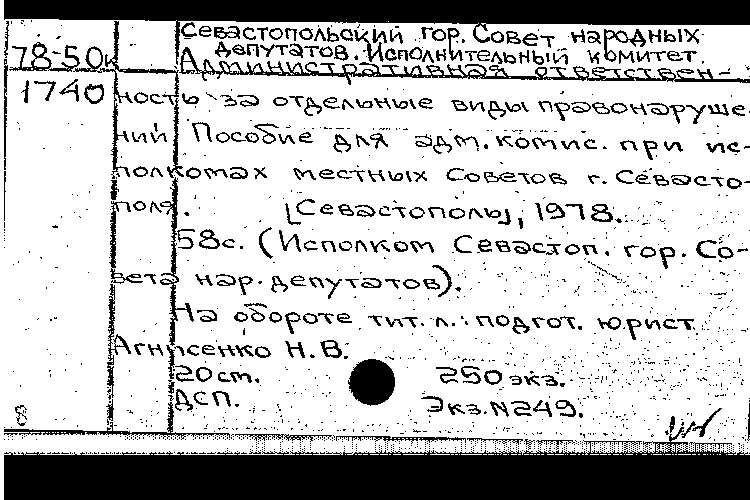 Севастопольский гор. Совет народных
78-50к депутатов. Исполнительный комитет.
Административная ответствен-
1740 ность за отдельные виды правонаруше-
ний Пособие для адм. комис. при ис-
полкомах местных Советов г. Севасто-
поля. [Севастополь], 1978.
58с. (Исполком Севастоп. гор. Со-
вета нар. депутатов).
На обороте тит. л.: подгот. юрист
Агнисенко Н.В.
20см. 250 экз.
ДСП. Экз. N249.
8